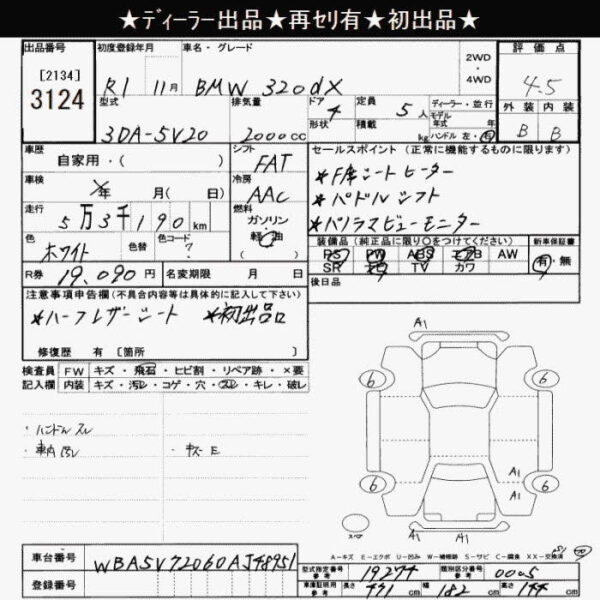 ★ディーラー出品★再セリ有★初出品★
出品番号 初度登録年月 車名・グレード 2WD・4WD 評価点
[2134] 3124 R1 11月 BMW 320dX 4.5
型式 排気量 ドア 4 定員 5人 ディーラー・並行 外装 内装
3DA-5V20 2000cc 形状 積載 kg モデル年式 年 ハンドル 左・右 B B
車歴 自家用・( ) シフト FAT セールスポイント (正常に機能するものに限ります)
車検 年 月( 日) 冷房 AAC ★F席シートヒーター
走行 5万3千190km 燃料 ガソリン 軽油 ★パドルシフト
★パノラマビューモニター
色 ホワイト 色替 色コード ?
装備品 (純正品に限り○をつけてください) 新車保証書
PS PW ABS エアB AW 有・無
SR TV カワ
R券 19,090円 名変期限 月 日 後日品
注意事項申告欄(不具合内容等は具体的に記入して下さい)
★ハーフレザーシート ★初出品
修復歴 有 [箇所
検査員 FW キズ・飛石・ヒビ割・リペア跡・×要
記入欄 内装 キズ・汚レ・コゲ・穴・スレ・キレ・破レ
・ハンドルスレ
・車内汚レ ・キズE
A1
6 6
6 6
A1
A1
A1
スペア
A-キズ E-エクボ U-凹み W-補修跡 S-サビ C-腐食 XX-交換済
車台番号 WBA5V72060AJ48951
型式指定番号 参考 19274 類別区分番号 参考 0005
登録番号 車庫証明用 参考 長さ 471cm 幅 182cm 高さ 144cm